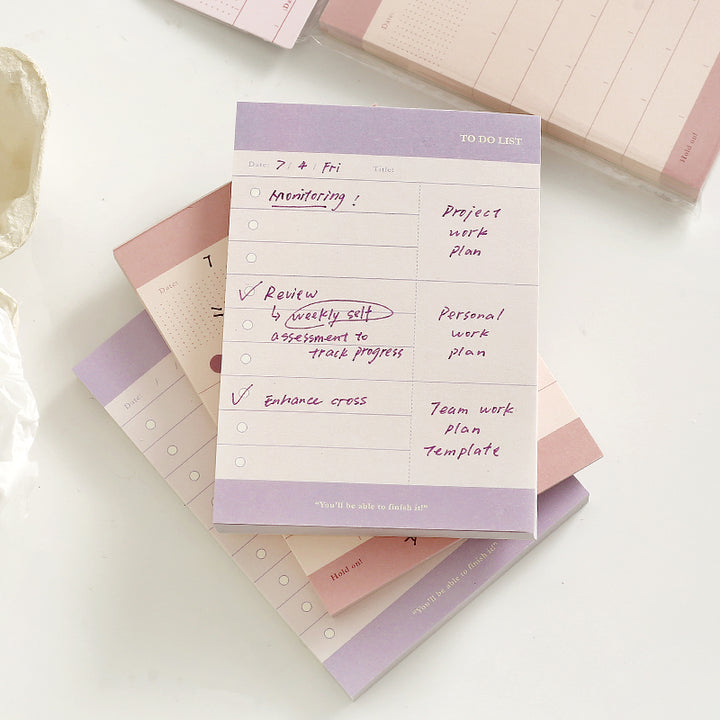 Date:
Hold on!
Date:
TO DO LIST
Date: 7 / 4 / Fri Title:
Monitoring !
Project
work
plan
Review
↳ weekly self
assessment to
track progress
Personal
work
plan
Enhance cross
Team work
plan
Template
"You'll be able to finish it!"
Date:
7
Hold on!
Date: / /
"You'll be able to finish it!"